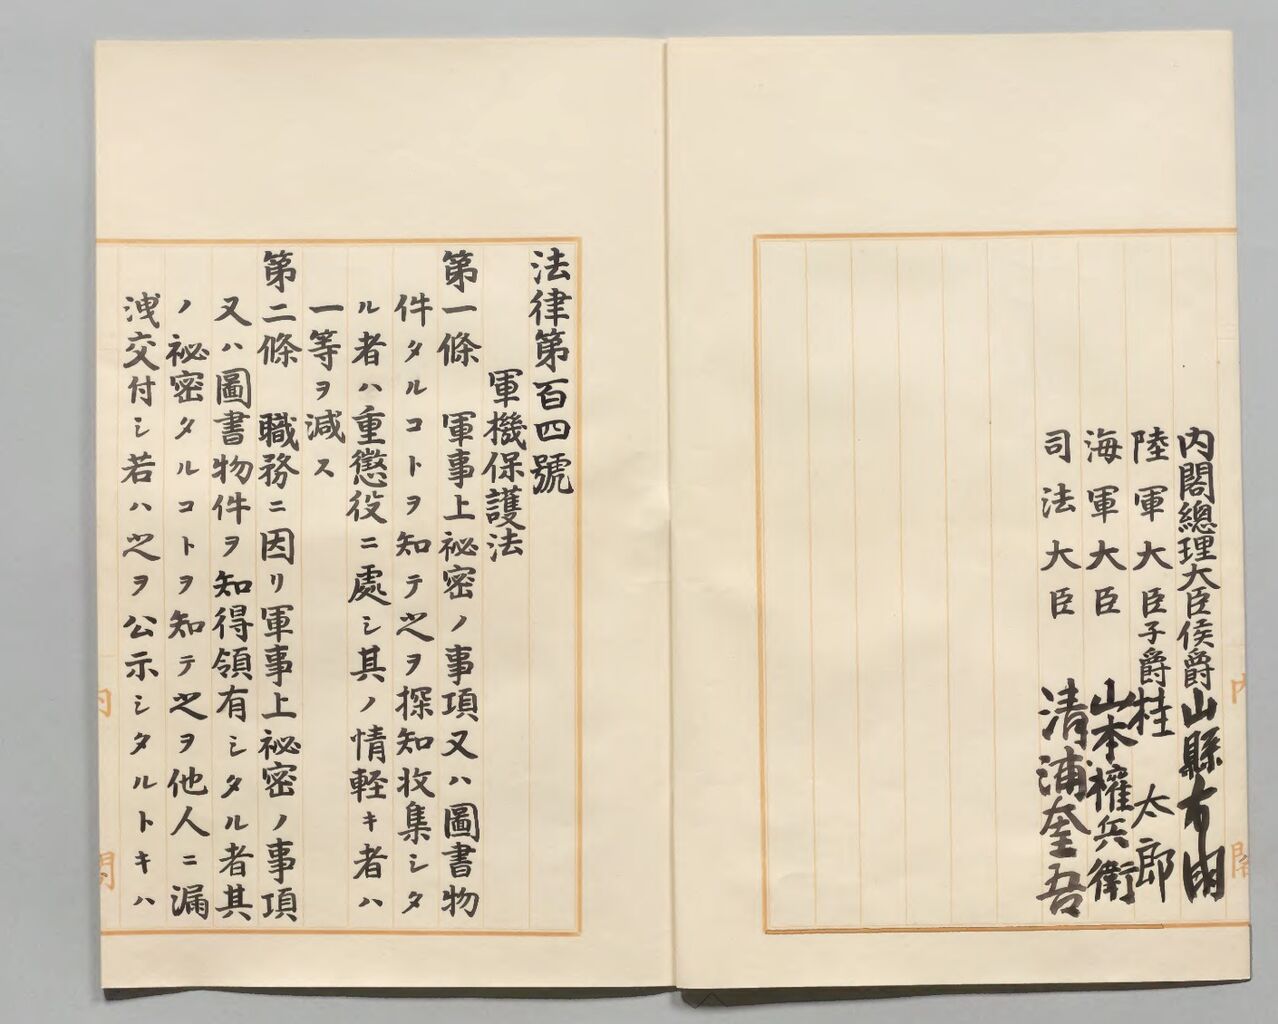 内閣總理大臣侯爵山縣有朋
陸軍大臣子爵桂太郎
海軍大臣 山本權兵衛
司法大臣 清浦奎吾
法律第百四號
軍機保護法
第一條 軍事上祕密ノ事項又ハ圖書物
件タルコトヲ知テ之ヲ探知收集シタ
ル者ハ重懲役ニ處シ其ノ情軽キ者ハ
一等ヲ減ス
第二條 職務ニ因リ軍事上祕密ノ事項
又ハ圖書物件ヲ知得領有シタル者其
ノ祕密タルコトヲ知テ之ヲ他人ニ漏
洩交付シ若ハ之ヲ公示シタルトキハ
内閣